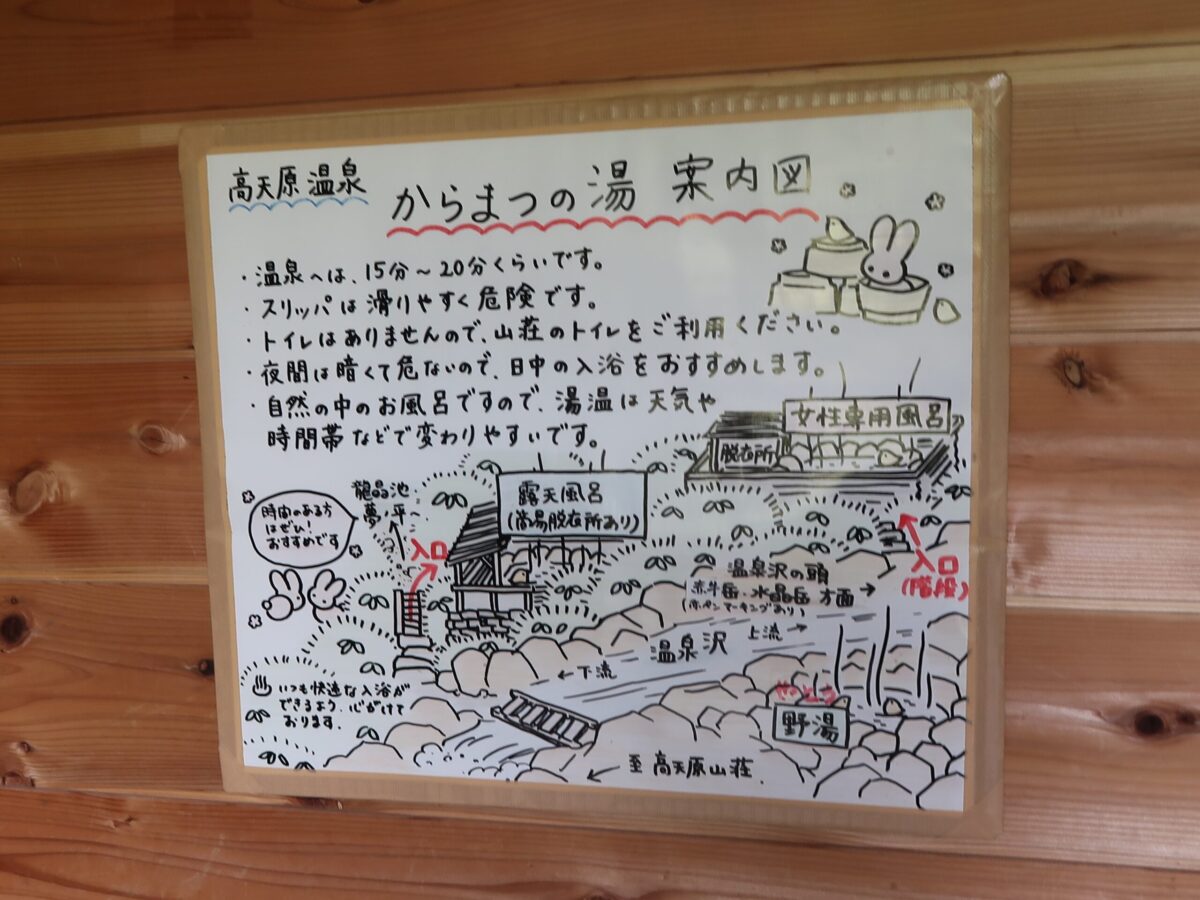 高天原温泉
からまつの湯 案内図
・温泉へは、15分～20分くらいです。
・スリッパは滑りやすく危険です。
・トイレはありませんので、山荘のトイレをご利用ください。
・夜間は暗くて危ないので、日中の入浴をおすすめします。
・自然の中のお風呂ですので、湯温は天気や
時間帯などで変わりやすいです。
女性専用風呂
脱衣所
龍晶池
夢ノ平へ
時間のある方
はぜひ!
おすすめです
露天風呂
(簡易脱衣所あり)
入口
入口
(階段)
温泉沢の頭
赤牛岳・水晶岳 方面→
(赤ペンマーキングあり)
温泉沢
上流→
←下流
いつも快適な入浴が
できるよう、心がけて
おります。
やとう
野湯
← 至 高天原山荘.